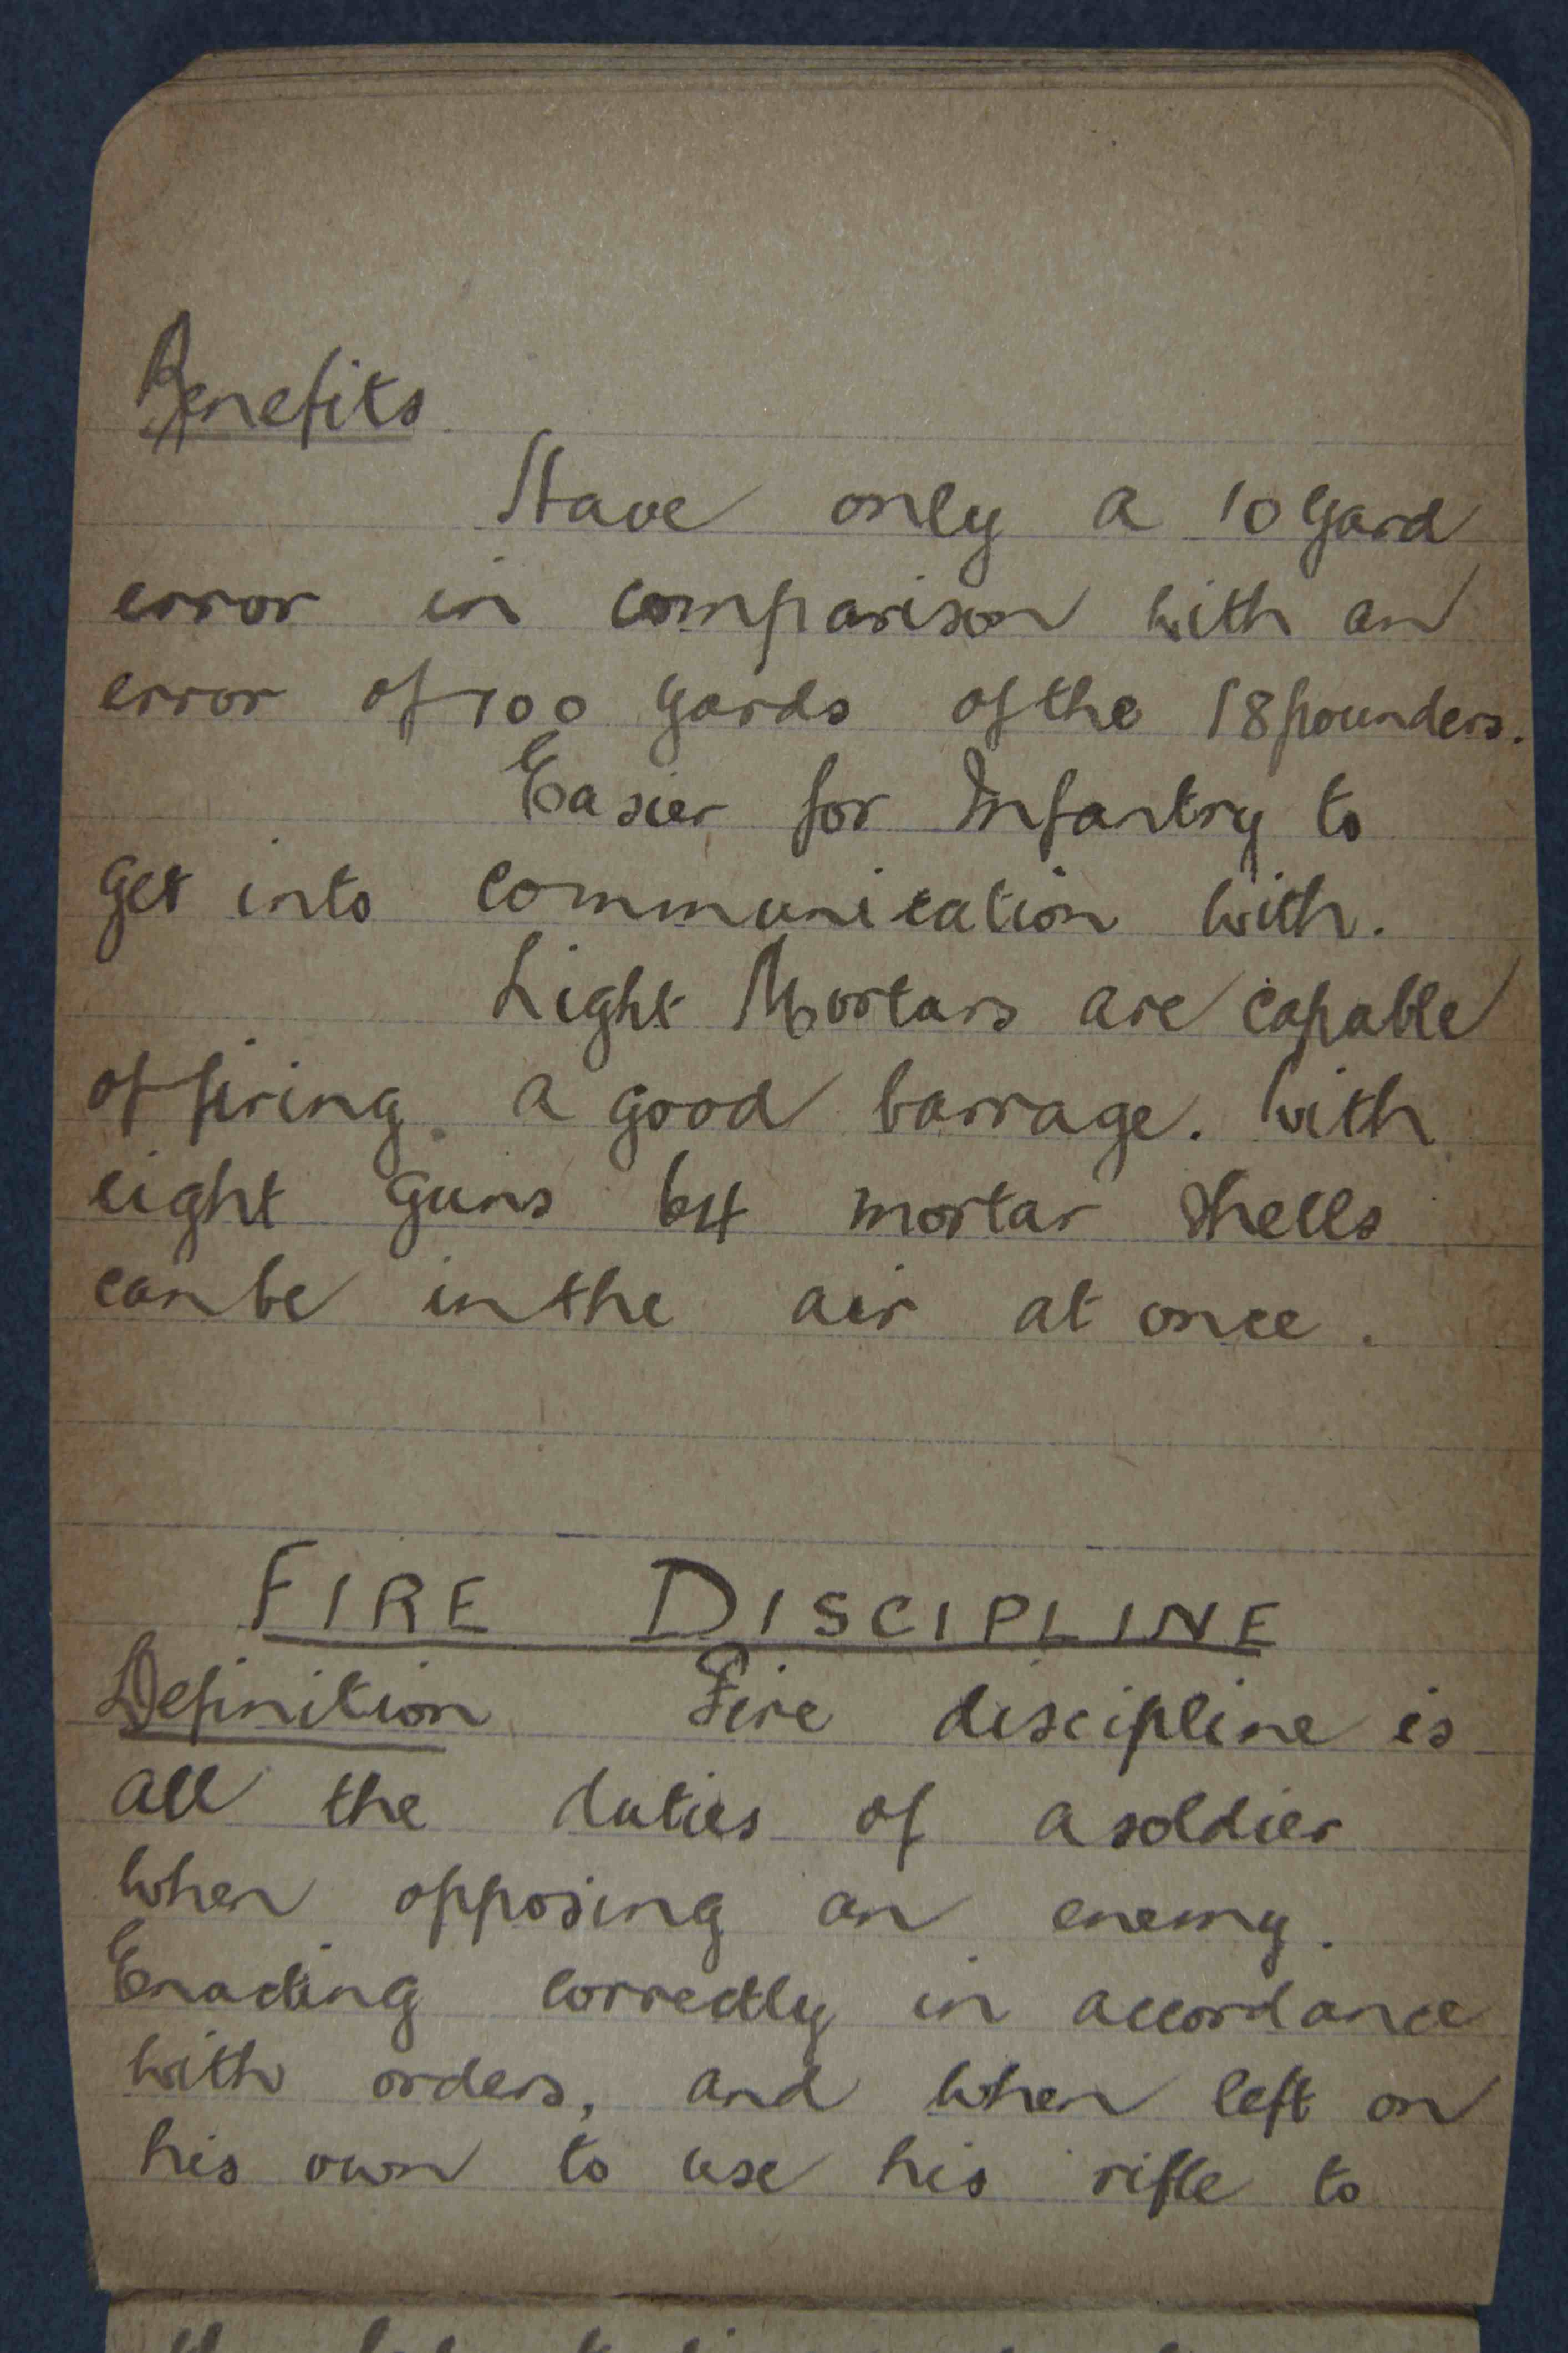 Benefits
Have only a 10 yard
error in comparison with an
error of 100 yards of the 18 pounders.
Easier for Infantry to
get into communication with.
Light Mortars are capable
of firing a good barrage. With
eight guns 64 mortar shells
can be in the air at once.
FIRE DISCIPLINE
Definition Fire discipline is
all the duties of a soldier
when opposing an enemy.
Enacting correctly in accordance
with orders, and when left on
his own to use his rifle to